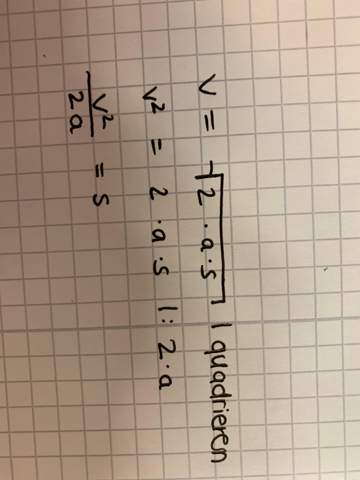 v = √2 · a · s | quadrieren
v² = 2 · a · s | : 2 · a
v²/2a = s